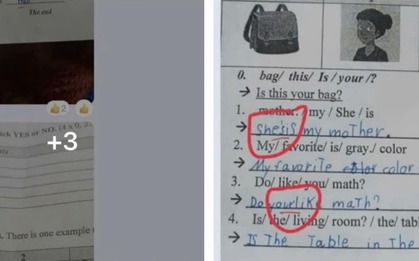 The end
2
ick YES or NO. (4 x 0, 2
+3
. There is one example
2
0. bag/ this/ Is / your /?
→ Is this your bag?
1. mother/ my / She / is
→ she'sis my moTher.
2. My/ favorite/ is/ gray./ color
→ My favorite color
3. Do/ like/ you/ math?
→ Do yourlik maTh?
4. Is/ the/ living/ room? / the/ tab
→ IS The Table in The